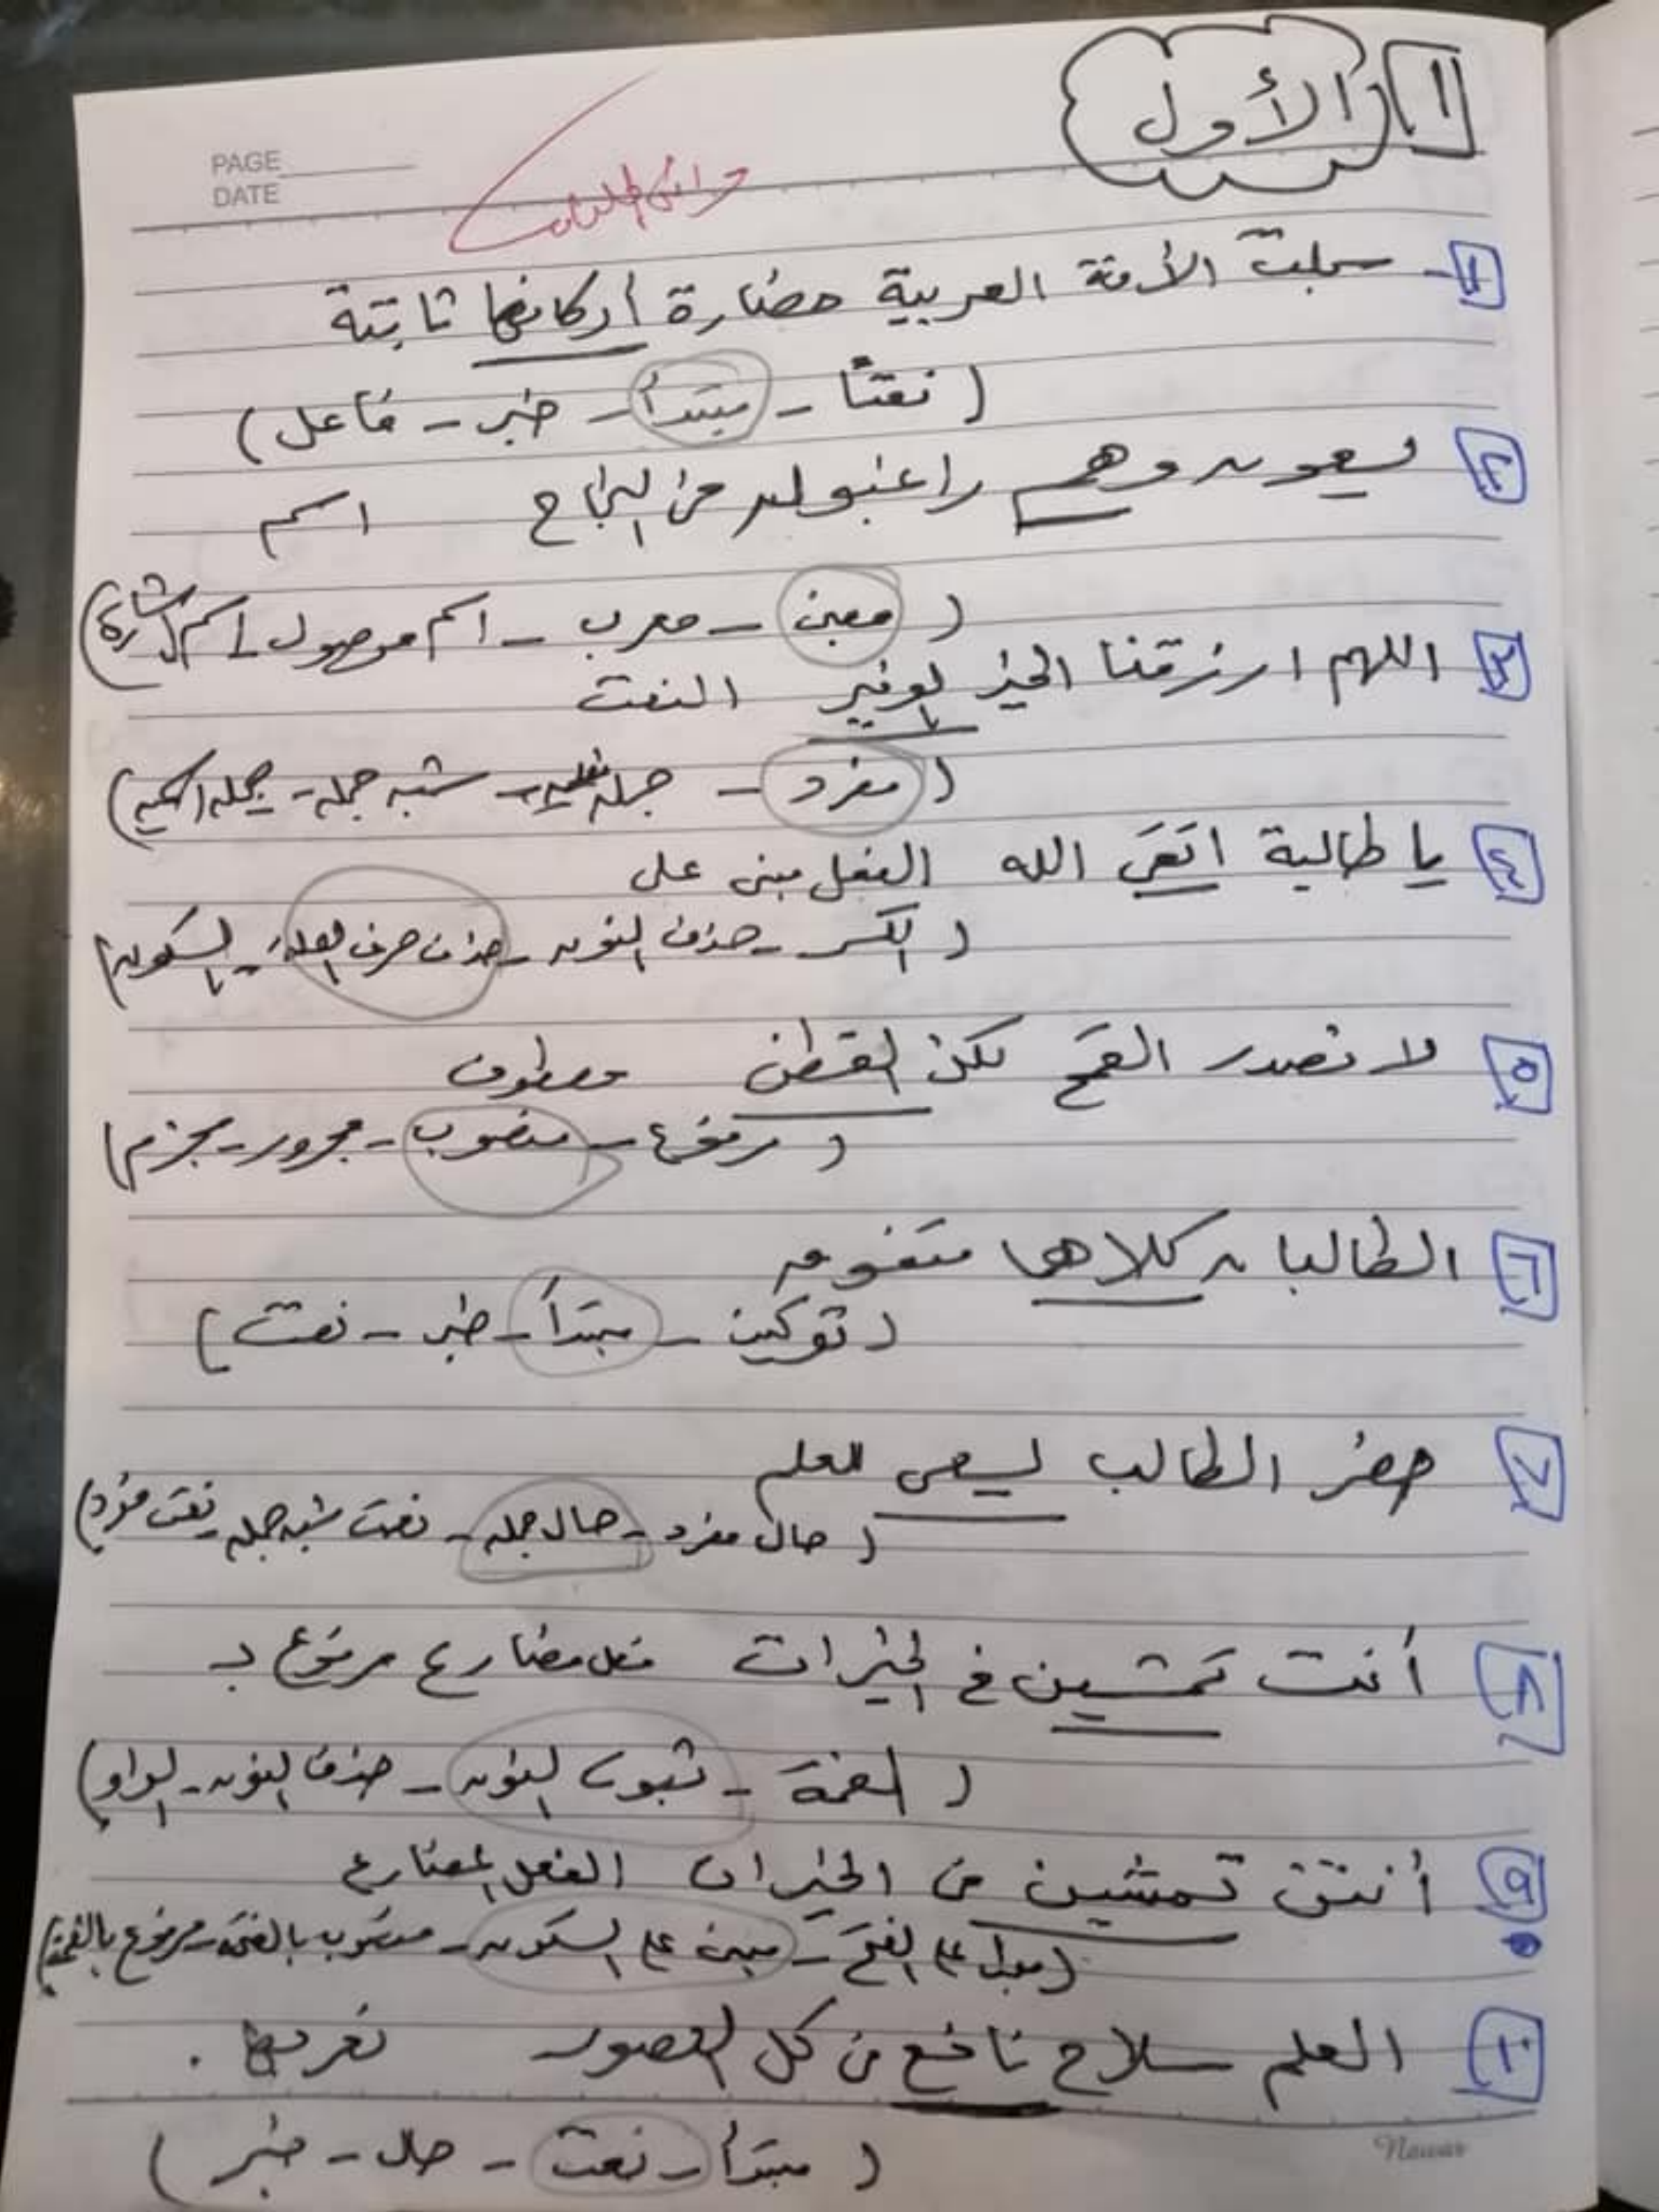 ١ الأول
PAGE
DATE
١- سجلت الأمة العربية حضارة أركانها ثابتة
( نعتًا - مبتدأ - خبر - فاعل )
٢ يسعون وهم راغبون في النجاح اسم
( مبني - معرب - اسم موصول - اسم إشارة )
٣ اللهم ارزقنا الخير الوفير النعت
( مفرد - جملة فعلية - شبه جملة - جملة اسمية )
٤ يا طالبة اتقي الله الفعل مبنى على
( الكسر - حذف النون - حذف حرف العلة - السكون )
٥ لا تصدر القمح لكن القطن معطوف
( مرفوع - منصوب - مجرور - مجزم )
٦ الطالبان كلاهما متفوق
( توكيد - مبتدأ - خبر - نعت )
٧ حضر الطالب يسعى للعلم
( حال مفرد - حال جملة - نعت شبه جملة - نعت مفرد )
٨ أنت تمشين في الخيرات فعل مضارع مرفوع بـ
( الضمة - ثبوت النون - حذف النون - الواو )
٩ أنتن تمشين في الخيرات الفعل المضارع
( مبنى على الفتح - مبنى على السكون - منصوب بالفتحة - مرفوع بالضمة )
١٠ العلم سلاح نافع في كل العصور تعربها .
( مبتدأ - نعت - حال - خبر )
Nawar